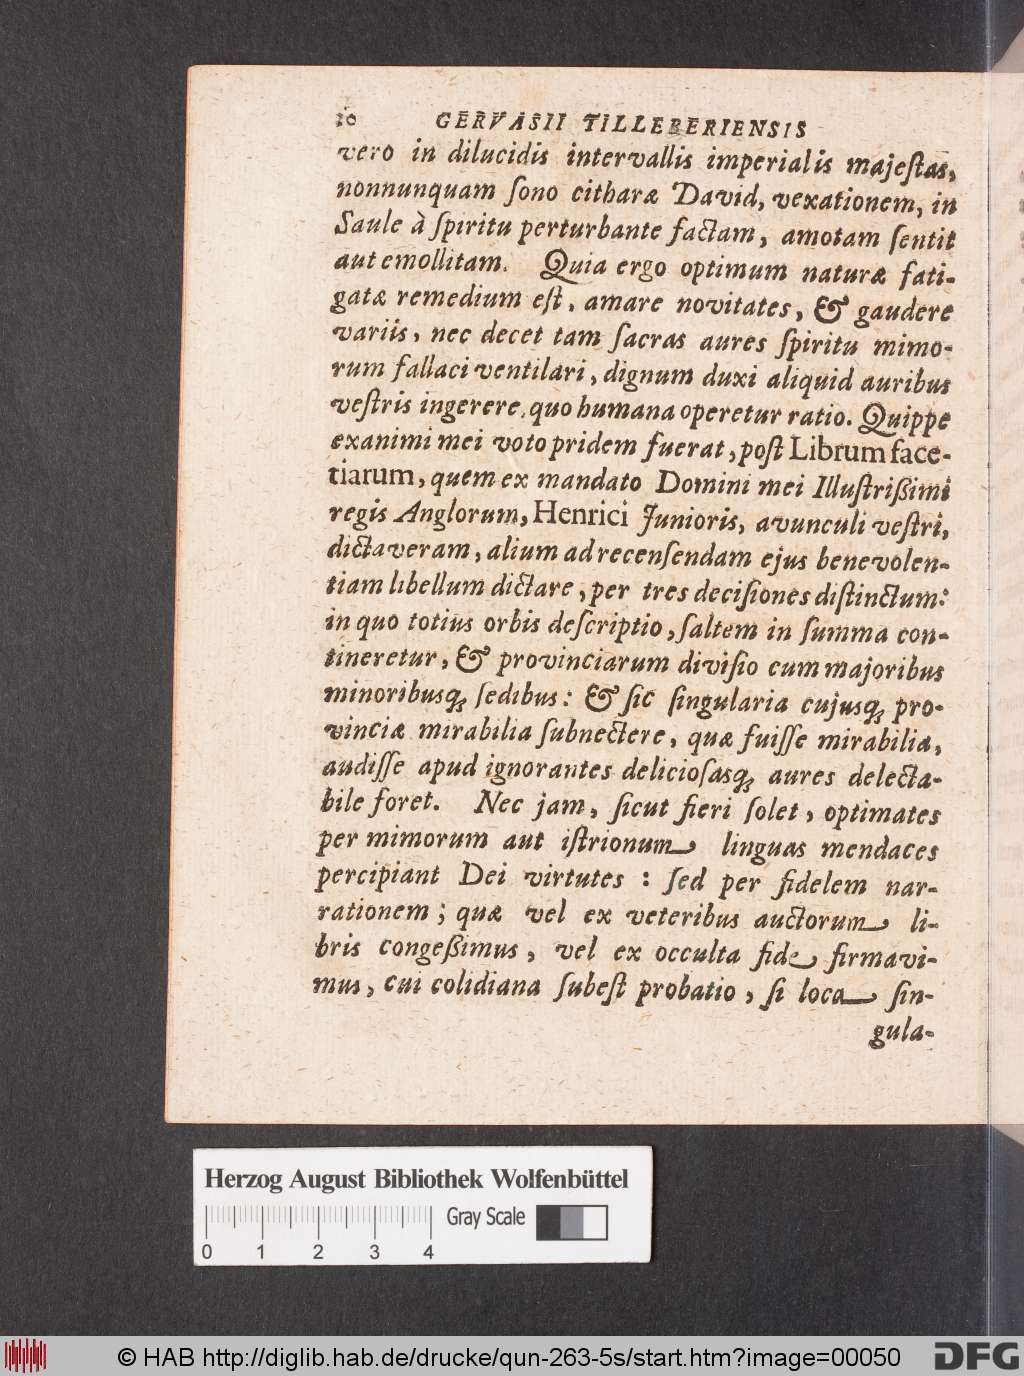 10 GERVASII TILLEBERIENSIS
vero in dilucidis intervallis imperialis majeſtas,
nonnunquam ſono citharæ David, vexationem, in
Saule à ſpiritu perturbante factam, amotam ſentit
aut emollitam. Quia ergo optimum naturæ fati-
gatæ remedium eſt, amare novitates, & gaudere
variis, nec decet tam ſacras aures ſpiritu mimo-
rum fallaci ventilari, dignum duxi aliquid auribus
veſtris ingerere, quo humana operetur ratio. Quippe
ex animi mei voto pridem fuerat, poſt Librum face-
tiarum, quem ex mandato Domini mei Illuſtrißimi
regis Anglorum, Henrici Junioris, avunculi veſtri,
dictaveram, alium ad recenſendam ejus benevolen-
tiam libellum dictare, per tres deciſiones diſtinctum:
in quo totius orbis deſcriptio, ſaltem in ſumma con-
tineretur, & provinciarum diviſio cum majoribus
minoribusq; ſedibus: & ſic ſingularia cujusq; pro-
vinciæ mirabilia ſubnectere, quæ fuiſſe mirabilia,
audiſſe apud ignorantes delicioſasq; aures delecta-
bile foret. Nec jam, ſicut fieri ſolet, optimates
per mimorum aut iſtrionum linguas mendaces
percipiant Dei virtutes : ſed per fidelem nar-
rationem; quæ vel ex veteribus auctorum li-
bris congeßimus, vel ex occulta fide firmavi-
mus, cui cotidiana ſubeſt probatio, ſi loca ſin-
gula-
Herzog August Bibliothek Wolfenbüttel
Gray Scale
0 1 2 3 4
© HAB http://diglib.hab.de/drucke/qun-263-5s/start.htm?image=00050 DFG